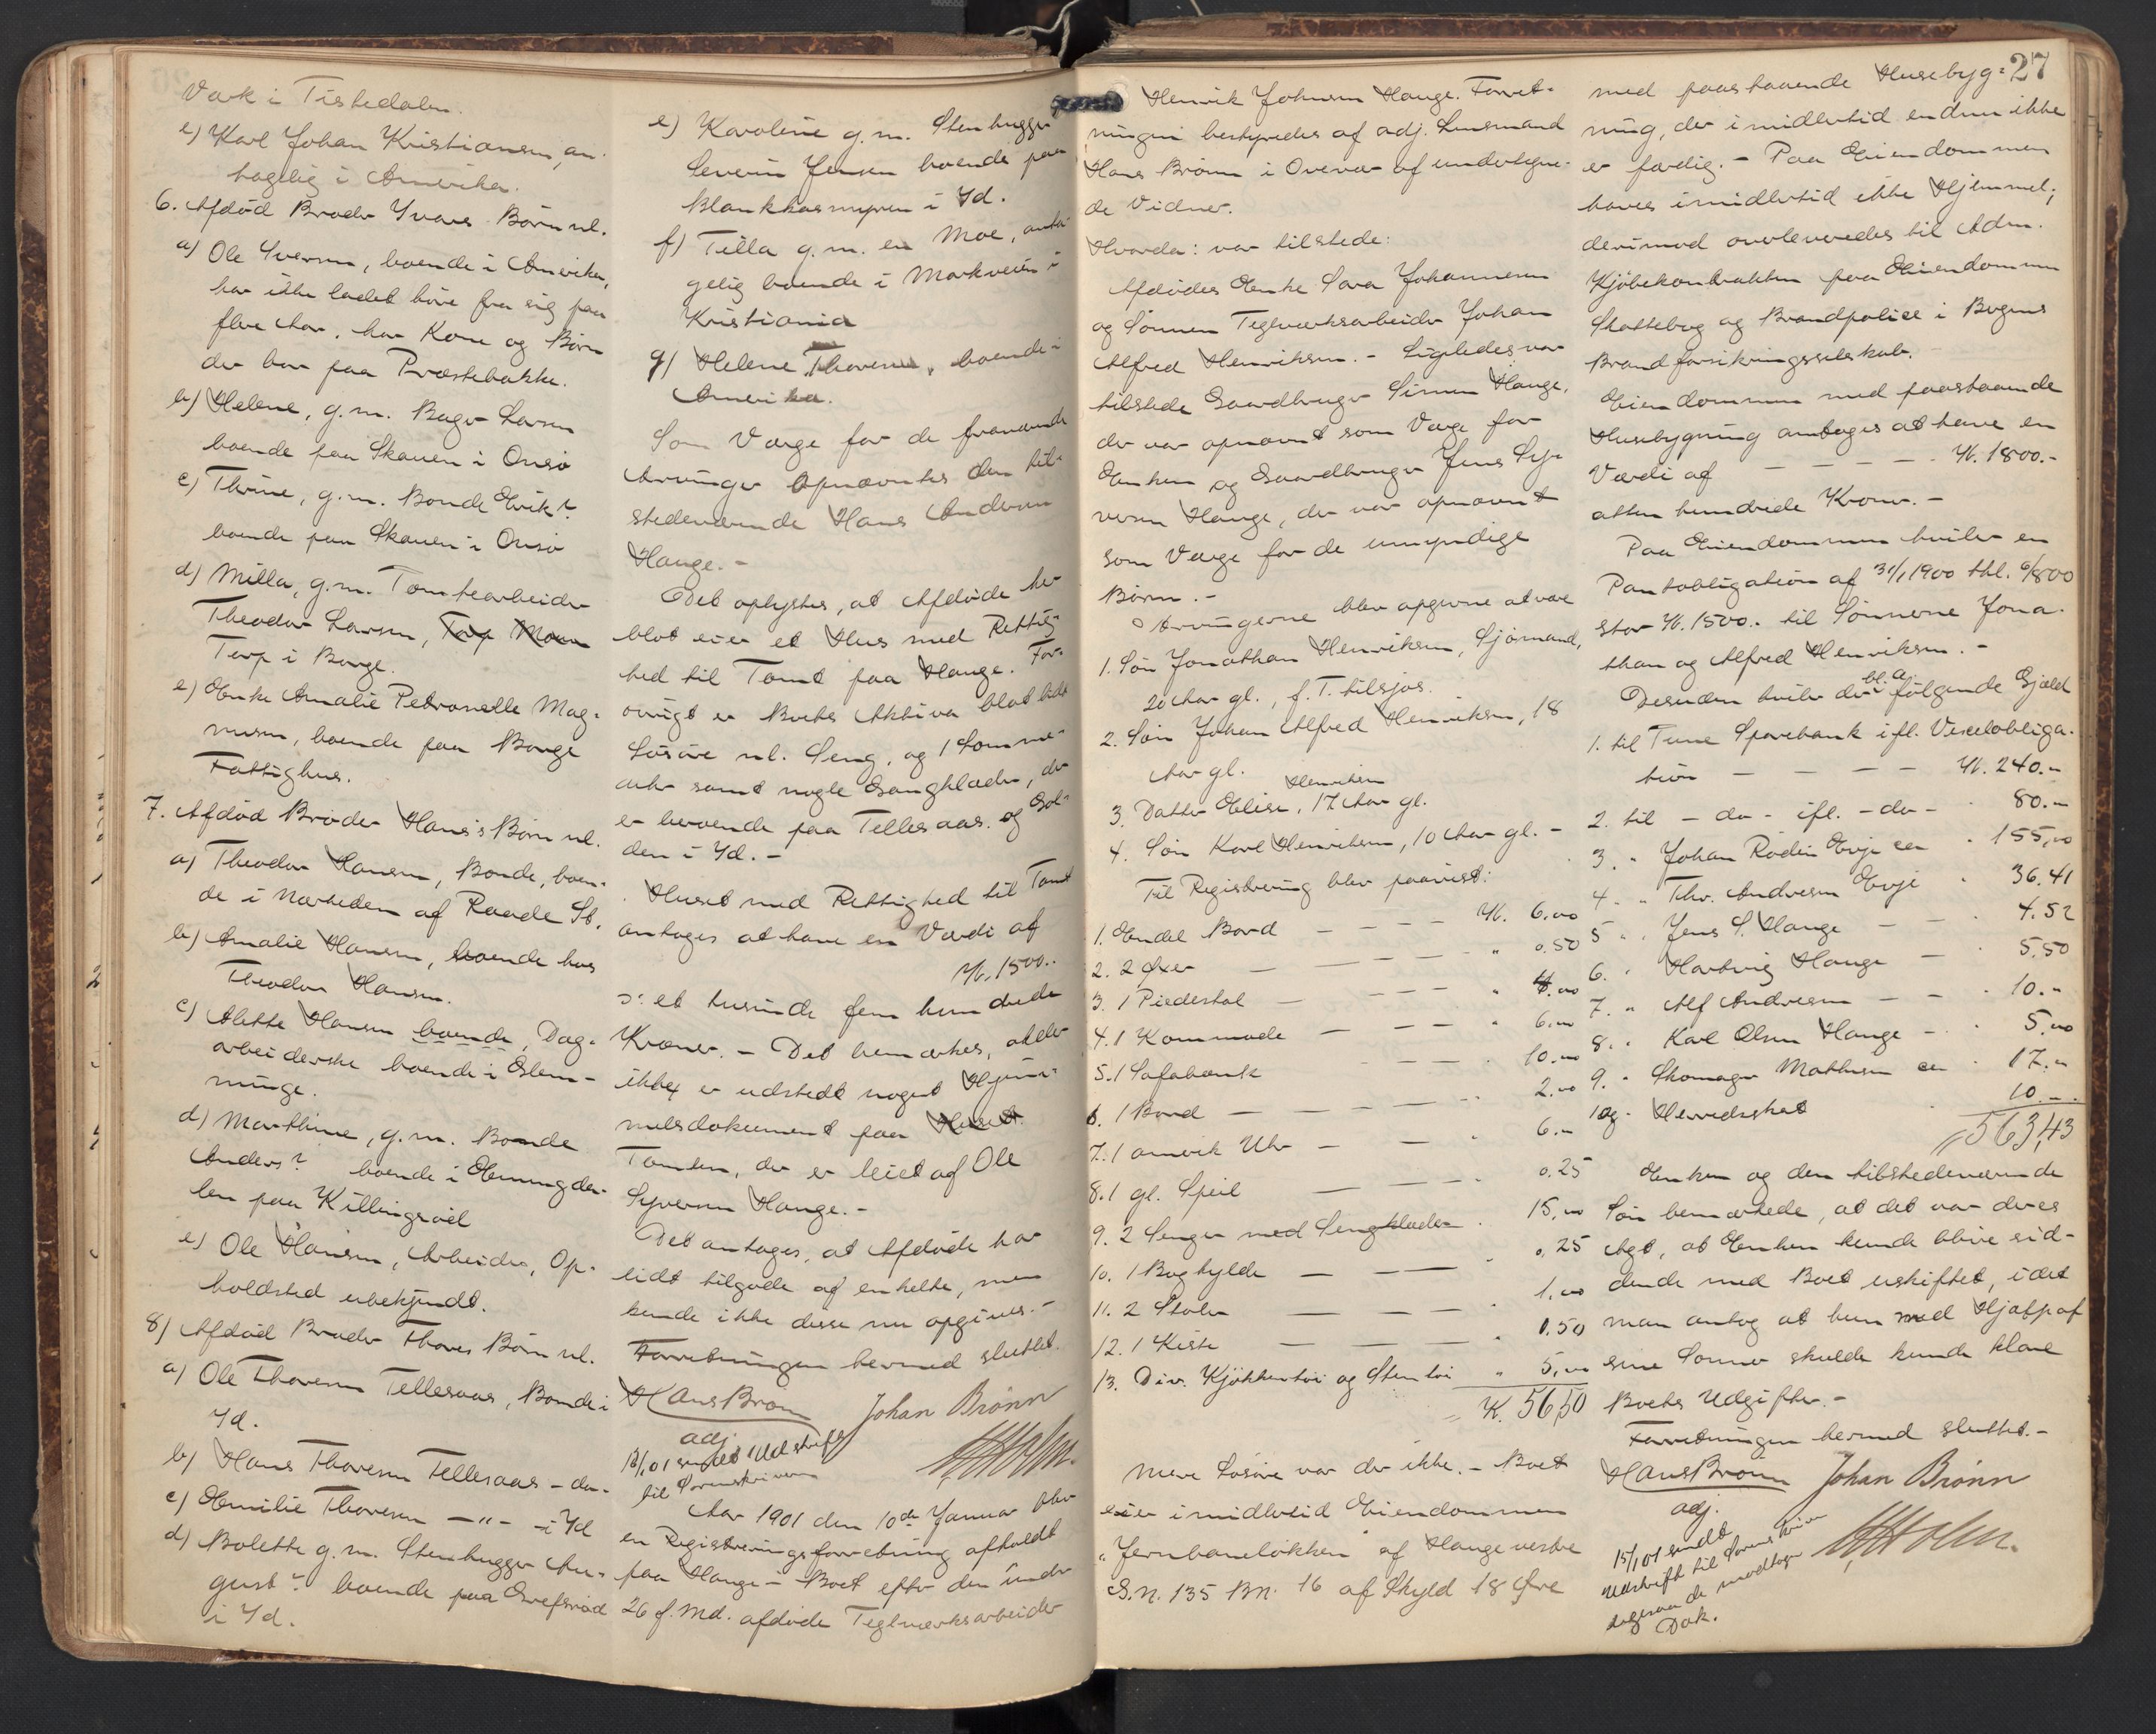 Værk i Tistedalen.
e) Karl Johan Kristiansen, an-
tagelig i Amerika.
6. Afdød Broder Ivars Børn nl.
a) Ole Iversen, boende i Amerika,
har ikke ladet høre fra sig paa
flere Aar, har Kone og Børn
der bor paa Præstebakke.
b) Helene, g.m. Bager Larsen
boende paa Skauen i Onsø
c) Thrine, g.m. Bonde Erik?
boende paa Skauen i Onsø
d) Milla, g.m. Tomtearbeider
Theodor Larsen, Torp Moen
Torp i Borge.
e) Enke Amalie Petronelle Mag-
nusen, boende paa Borge
Fattighus.
7. Afdød Broder Hans's Børn nl.
a) Theodor Hansen, Bonde, boen-
de i Nærheden af Raade St.
b) Amalie Hansen, boende hos
Theodor Hansen.
c) Alette Hansen boende, Dag-
arbeiderske boende i Glem-
minge.
d) Marthine, g.m. Bonde
Anders? boende i Henningda-
len paa Killingrød
e) Ole Hansen, Arbeider, Op-
holdsted ubekjendt.
8) Afdød Broder Thores Børn nl.
a) Ole Thoresen Tellesaas, Bonde i
Id.
b) Hans Thoresen Tellesaas - do -
c) Emilie Thoresen - " - i Id
d) Bolette g.m. Stenhugger Au-
gust? boende paa Grefsrød
i Id.
e) Karoline g.m. Stenhugger
Severin Jensen boende paa
Blankkasmyren i Id.
f) Tilla g.m. en Moe, anta-
gelig boende i Markveien i
Kristiania
g) Helene Thoresen, boende i
Amerika.
Som Værge for de fraværende
Arvinger opnævntes den til-
stedeværende Hans Andersen
Hauge. -
Det oplystes, at Afdøde her
blot eier et Hus med Rettig-
hed til Tomt paa Hauge. For-
øvrigt er Boets Aktiva blot lidt
Løsøre nl. Seng, og 1 Lomme-
uhr samt nogle Gangklæder, der
er beroende paa Tellesaas og Gol-
den i Id. -
Huset med Rettighed til Tomt
antages at have en Værdi af
Kr. 1500..
ɔ: et tusinde fem hundrede
Kroner. - Det bemærkes, at der
ikke er udstedt noget Hjem-
melsdokument paa Huset.
Tomten, der er leiet af Ole
Syversen Hauge. -
Det antages, at Afdøde har
lidt tilgode af enkelte, men
kunde ikke disse nu opgives. -
Forretningen hermed sluttet.
Hans Brønn Johan Brønn
adj.
HHolm.
13/1 01 sendt Udskrift
til Sorenskriveren
Aar 1901 den 10de Januar blev
en Registreringsforretning afholdt
paa Hauge i Boet efter den under
26 f. Md. afdøde Teglværksarbeider
27
Henrik Johnsen Hauge. Forret-
ningen bestyredes af adj. Lensmand
Hans Brønn i Overvær af undertegne-
de Vidner.
Hvorda: var tilstede:
Afdødes Enke Sara Johannesen
og Sønnen Teglværksarbeider Johan
Alfred Henriksen. - Ligeledes var
tilstede Gaardbruger Simen Hauge,
der var opnævnt som Værge for
Enken og Gaardbruger Jens Sy-
versen Hauge, der var opnævnt
som Værge for de umyndige
Børn. -
Arvingerne blev opgivne at være
1. Søn Jonathan Henriksen, Sjømand,
20 Aar gl., f. T. tilsjøs.
2. Søn Johan Alfred Henriksen, 18
Aar gl.
3. Datter Elise Henriksen, 17 Aar gl.
4. Søn Karl Henriksen, 10 Aar gl. -
Til Registrering blev paavist:
1. Endel Bord - - - Kr. 6.00
2. 2 Øxer - - - " 0.50
3. 1 Piedestal - - - " 4.00
4. 1 Kommode - - - " 6.00
5. 1 Sofabænk - - - 10.00
6. 1 Bord - - - 2.00
7. 1 amerik Uhr - - " 6.-
8. 1 gl. Speil - - - 0.25
9. 2 Senge med Sengklæder . 15,00
10. 1 Boghylde - - - " 0,25
11. 2 Stoler - - - " 1,00
12. 1 Kiste - - - " 0.50
13. Div. Kjøkkentøi og Stentøi " 5,00
K. 56,50
Mere Løsøre var der ikke. - Boet
eier imidlertid Eiendommen
"Jernbaneløkken" af Hauge vestre
G.N. 135 Bn. 16 af Skyld 18 Øre
med paastaaende Husebyg-
ning, der imidlertid endnu ikke
er færdig. - Paa Eiendommen
haves imidlertid ikke Hjemmel;
derimod overleveredes til Adm.
Kjøbekontrakten paa Eiendommen
Skattebog og Brandpolice i Bygens
Brandforsikringsselskab.
Eiendommen med paastaaende
Husebygning antages at have en
Værdi af - - - - Kr. 1800.-
atten hundrede Kroner. -
Paa Eiendommen hviler en
Pantobligation af 31/1 1900 thl. 6/8 00
stor Kr. 1500.. til Sønnerne Jona-
than og Alfred Henriksen. -
Desuden hviler der bl. a. følgende Gjæld
1. til Tune Sparebank ifl. Vexelobliga-
tion - - - - Kr. 240.-
2. til - do - ifl. - do - . 80.-
3. " Johan Rødin Evje ca . 155,00
4. " Thv. Andresen Evje . 36.41
5 " Jens S. Hauge - . 4.52
6. " Hartvig Hauge - . 5.50
7. " Alf Andresen - - . 10.-
8. " Karl Olsen Hauge - . 5,00
9. " Skomager Mathisen ca . 17.-
10 og. Herredsskat . 10.-
563,43
Enken og den tilstedeværende
Søn bemærkede, at det var deres
Agt, at Enken kunde blive sid-
dende med Boet uskiftet, idet
man antog at hun med Hjælp af
sine Sønner skulde kunde klare
Boets Udgifter. -
Forretningen hermed sluttet. -
Hans Brønn Johan Brønn
adj.
HHolm.
15/1 01 sendt
Udskrift til Sorenskriver
ligesaa de modtagne
Dok.